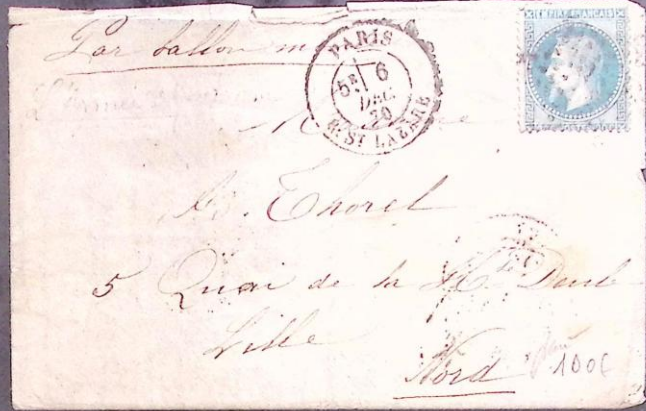 Par ballon
PARIS
5E 6
DEC.
70
R. ST LAZARE
EMPIRE FRANÇAIS
Thorel
5 Quai de la Hte Deule
Lille
Nord
100€